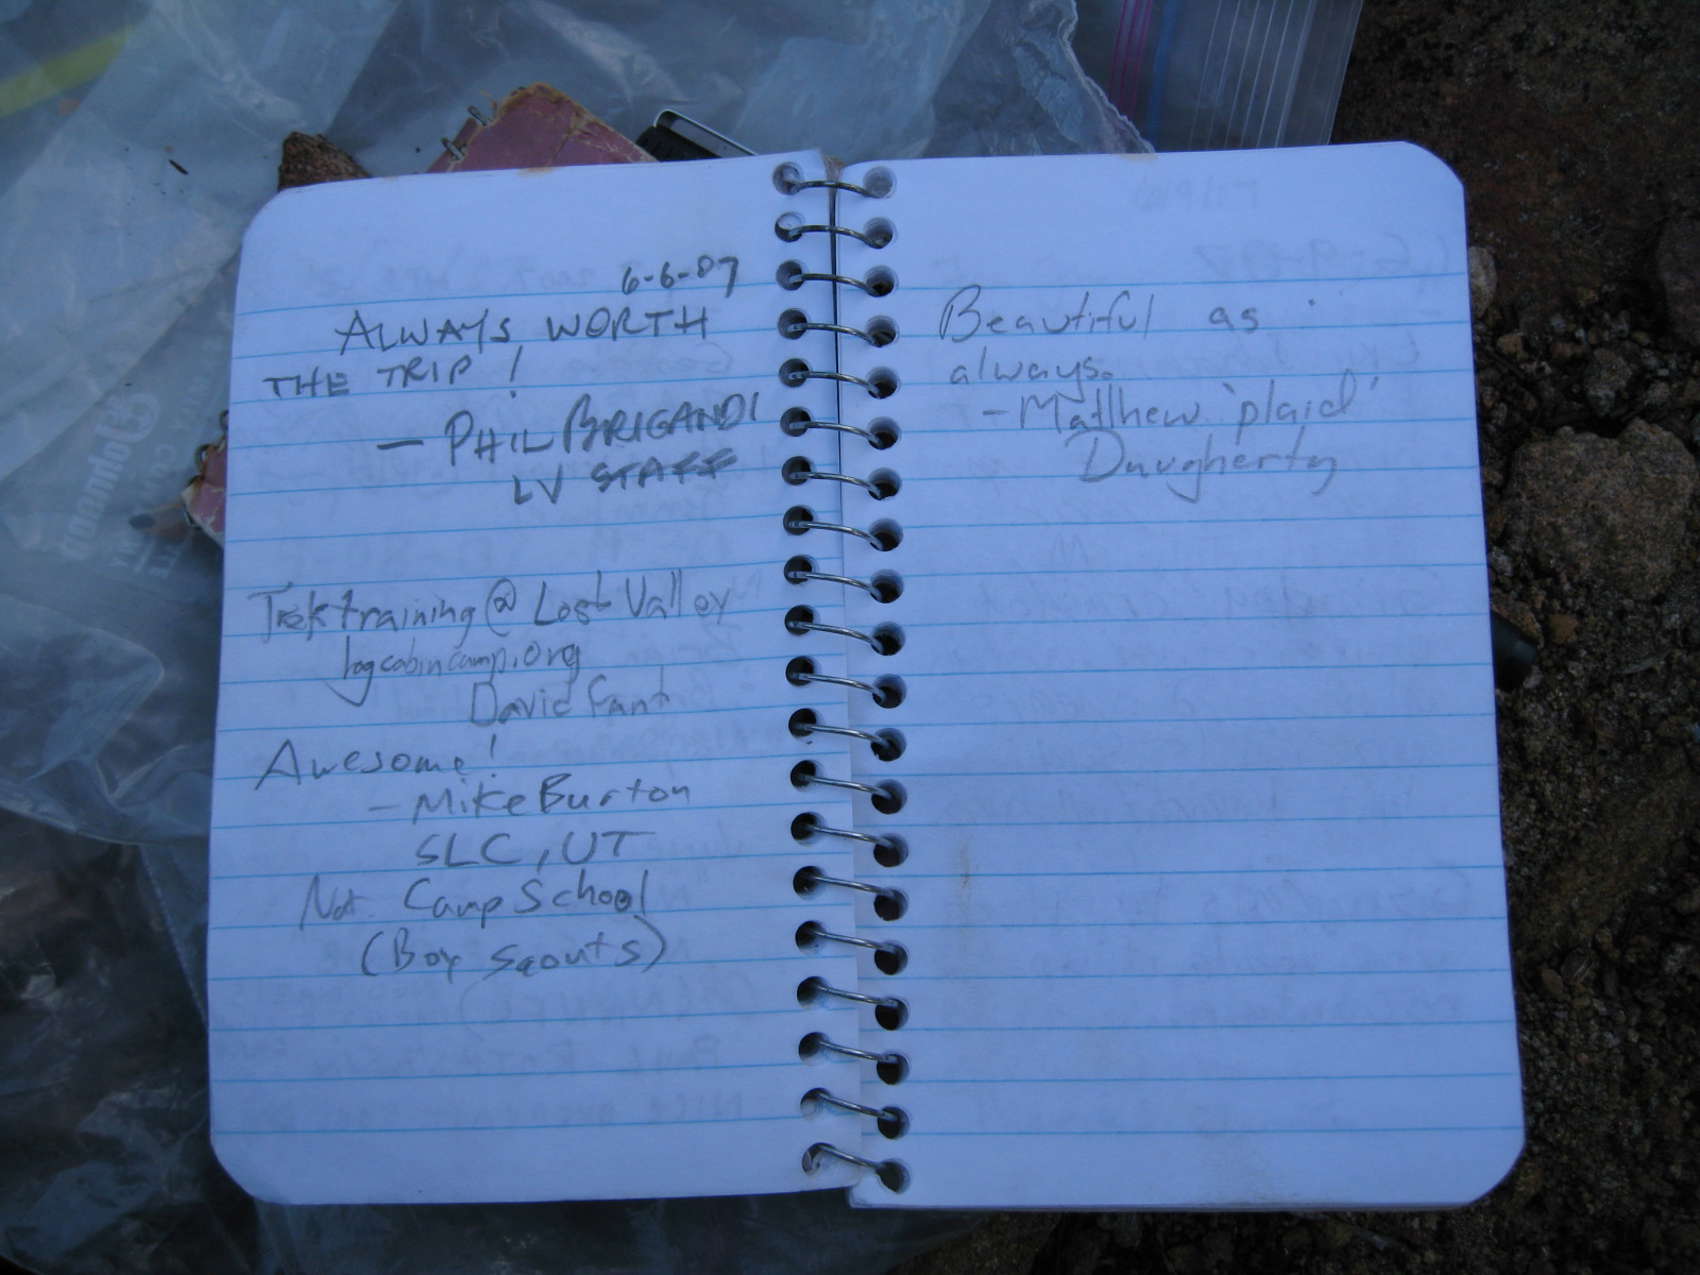 6-6-07
ALWAYS WORTH
THE TRIP!
— PHIL BRIGANDI
LV STAFF
Trek training @ Lost Valley
logcabincamp.org
David Fant
Awesome!
- Mike Burton
SLC, UT
Nat. Camp School
(Boy Scouts)
Beautiful as
always.
- Matthew 'plaid'
Daugherty
Johnson